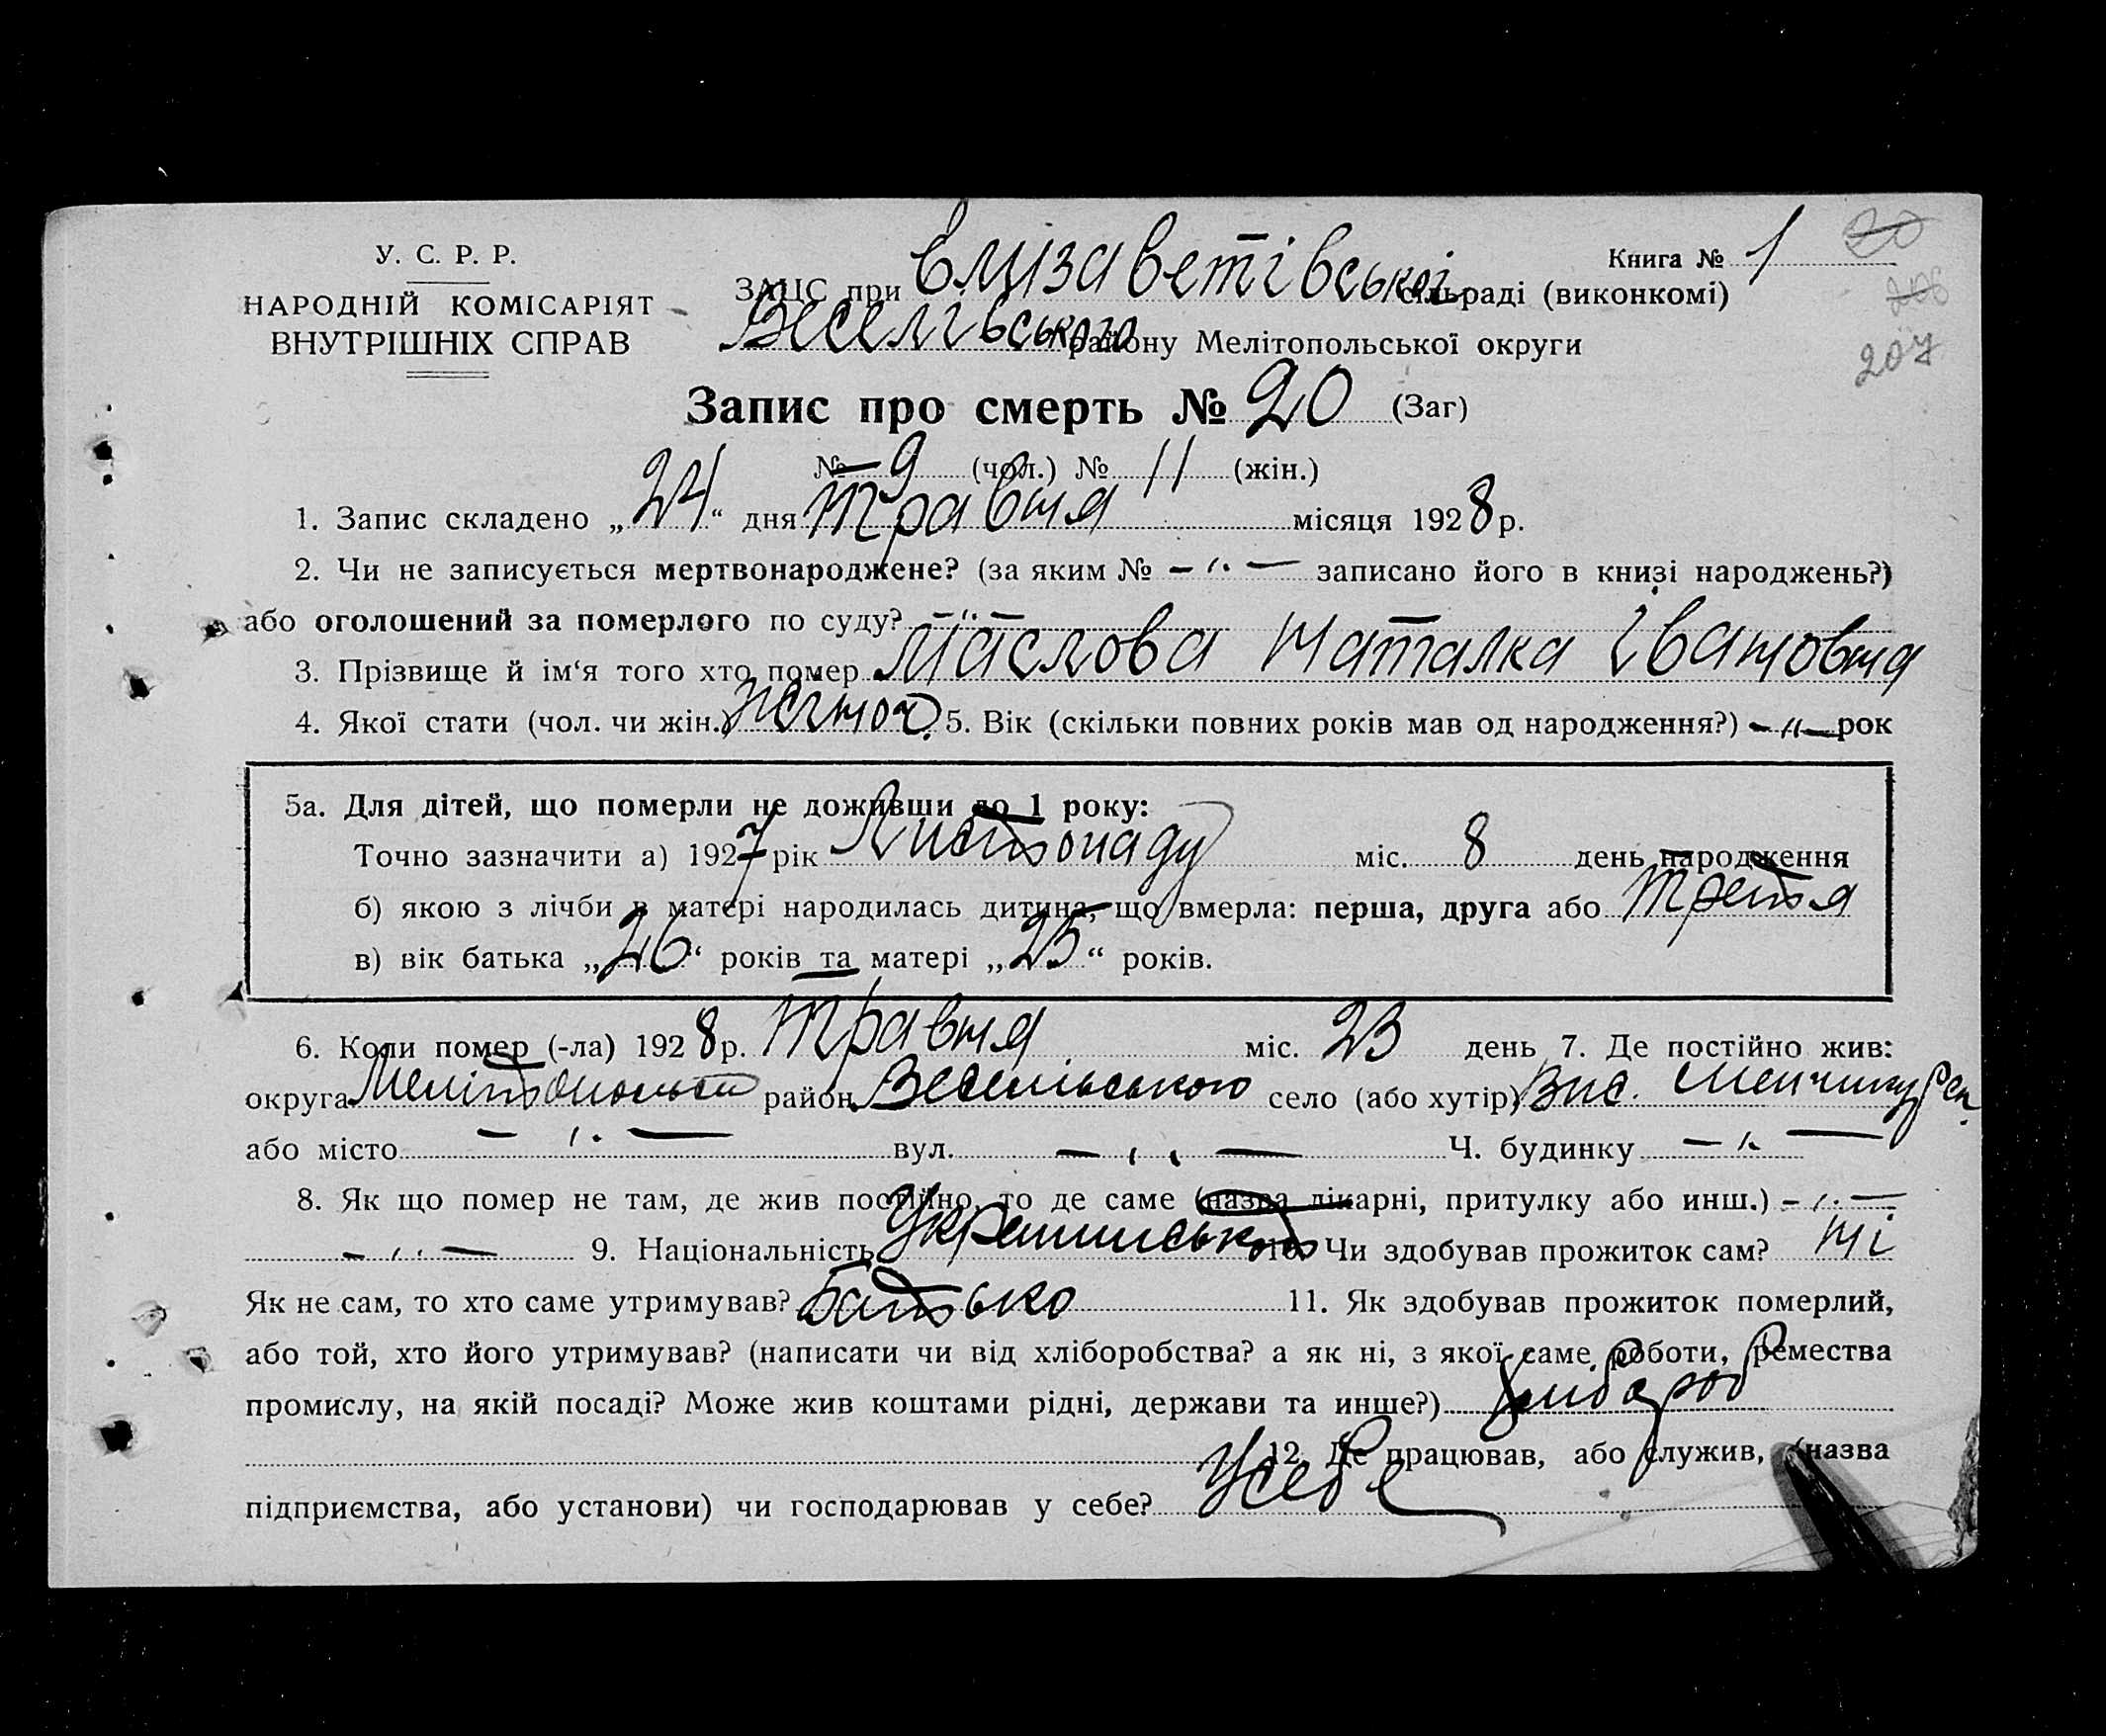 У. С. Р. Р.
НАРОДНІЙ КОМІСАРІЯТ
ВНУТРІШНІХ СПРАВ
Книга № 1
20
206
207
ЗАЦС при Єлизаветівської сільраді (виконкомі)
Веселівського району Мелітопольської округи
Запис про смерть № 20 (Заг)
№ 9 (чол.) № 11 (жін.)
1. Запис складено „24“ дня травня місяця 1928 р.
2. Чи не записується мертвонароджене? (за яким № — „ — записано його в книзі народжень?)
або оголошений за померлого по суду? — „ —
3. Прізвище й ім‘я того хто помер Маслова Наталка Івановна
4. Якої стати (чол. чи жін.) жіноч. 5. Вік (скільки повних років мав од народження?) — „ — рок
5а. Для дітей, що померли не доживши до 1 року:
Точно зазначити а) 1927 рік Листопаду міс. 8 день народження
б) якою з лічби в матері народилась дитина, що вмерла: перша, друга або третя
в) вік батька „26“ років та матері „25“ років.
6. Коли помер (-ла) 1928 р. травня міс. 23 день 7. Де постійно жив:
округа район Веселівського село (або хутір) Вис.
або місто — „ — вул. — „ — Ч. будинку — „ —
8. Як що помер не там, де жив постійно, то де саме (назва лікарні, притулку або инш.) — „ —
— „ — 9. Національність 10. Чи здобував прожиток сам? ні
Як не сам, то хто саме утримував? Батько 11. Як здобував прожиток померлий,
або той, хто його утримував? (написати чи від хліборобства? а як ні, з якої саме роботи, ремества
промислу, на якій посаді? Може жив коштами рідні, держави та инше?) хлибороб
12. Де працював, або служив, (назва
підприємства, або установи) чи господарював у себе? У себе